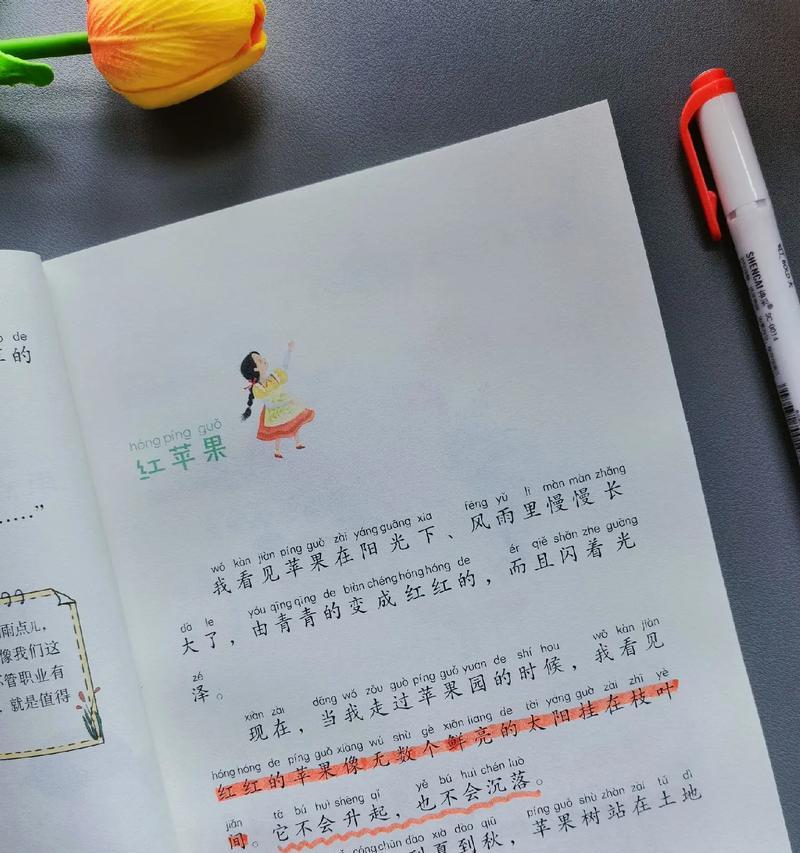 de
的
……”
雨点儿，
像我们这
管职业有
就是值得
hóng píng guǒ
红苹果
wǒ kàn jiàn píng guǒ zài yáng guāng xia fēng yǔ li màn màn zhǎng
我看见苹果在阳光下、风雨里慢慢长
dà le yóu qīng qīng de biàn chéng hóng hóng de ér qiě shǎn zhe guāng
大了，由青青的变成红红的，而且闪着光
zé
泽。
xiàn zài dāng wǒ zǒu guò píng guǒ yuán de shí hou wǒ kàn jiàn
现在，当我走过苹果园的时候，我看见
hóng hóng de píng guǒ xiàng wú shù gè xiān liang de tài yáng guà zài zhī yè
红红的苹果像无数个鲜亮的太阳挂在枝叶
jiān tā bú huì shēng qǐ yě bú huì chén luò
间。它不会升起，也不会沉落。
cóng chūn dào xià dào qiū píng guǒ shù zhàn zài tǔ dì
到夏到秋，苹果树站在土地
SHENCAI 神彩® SC-9014